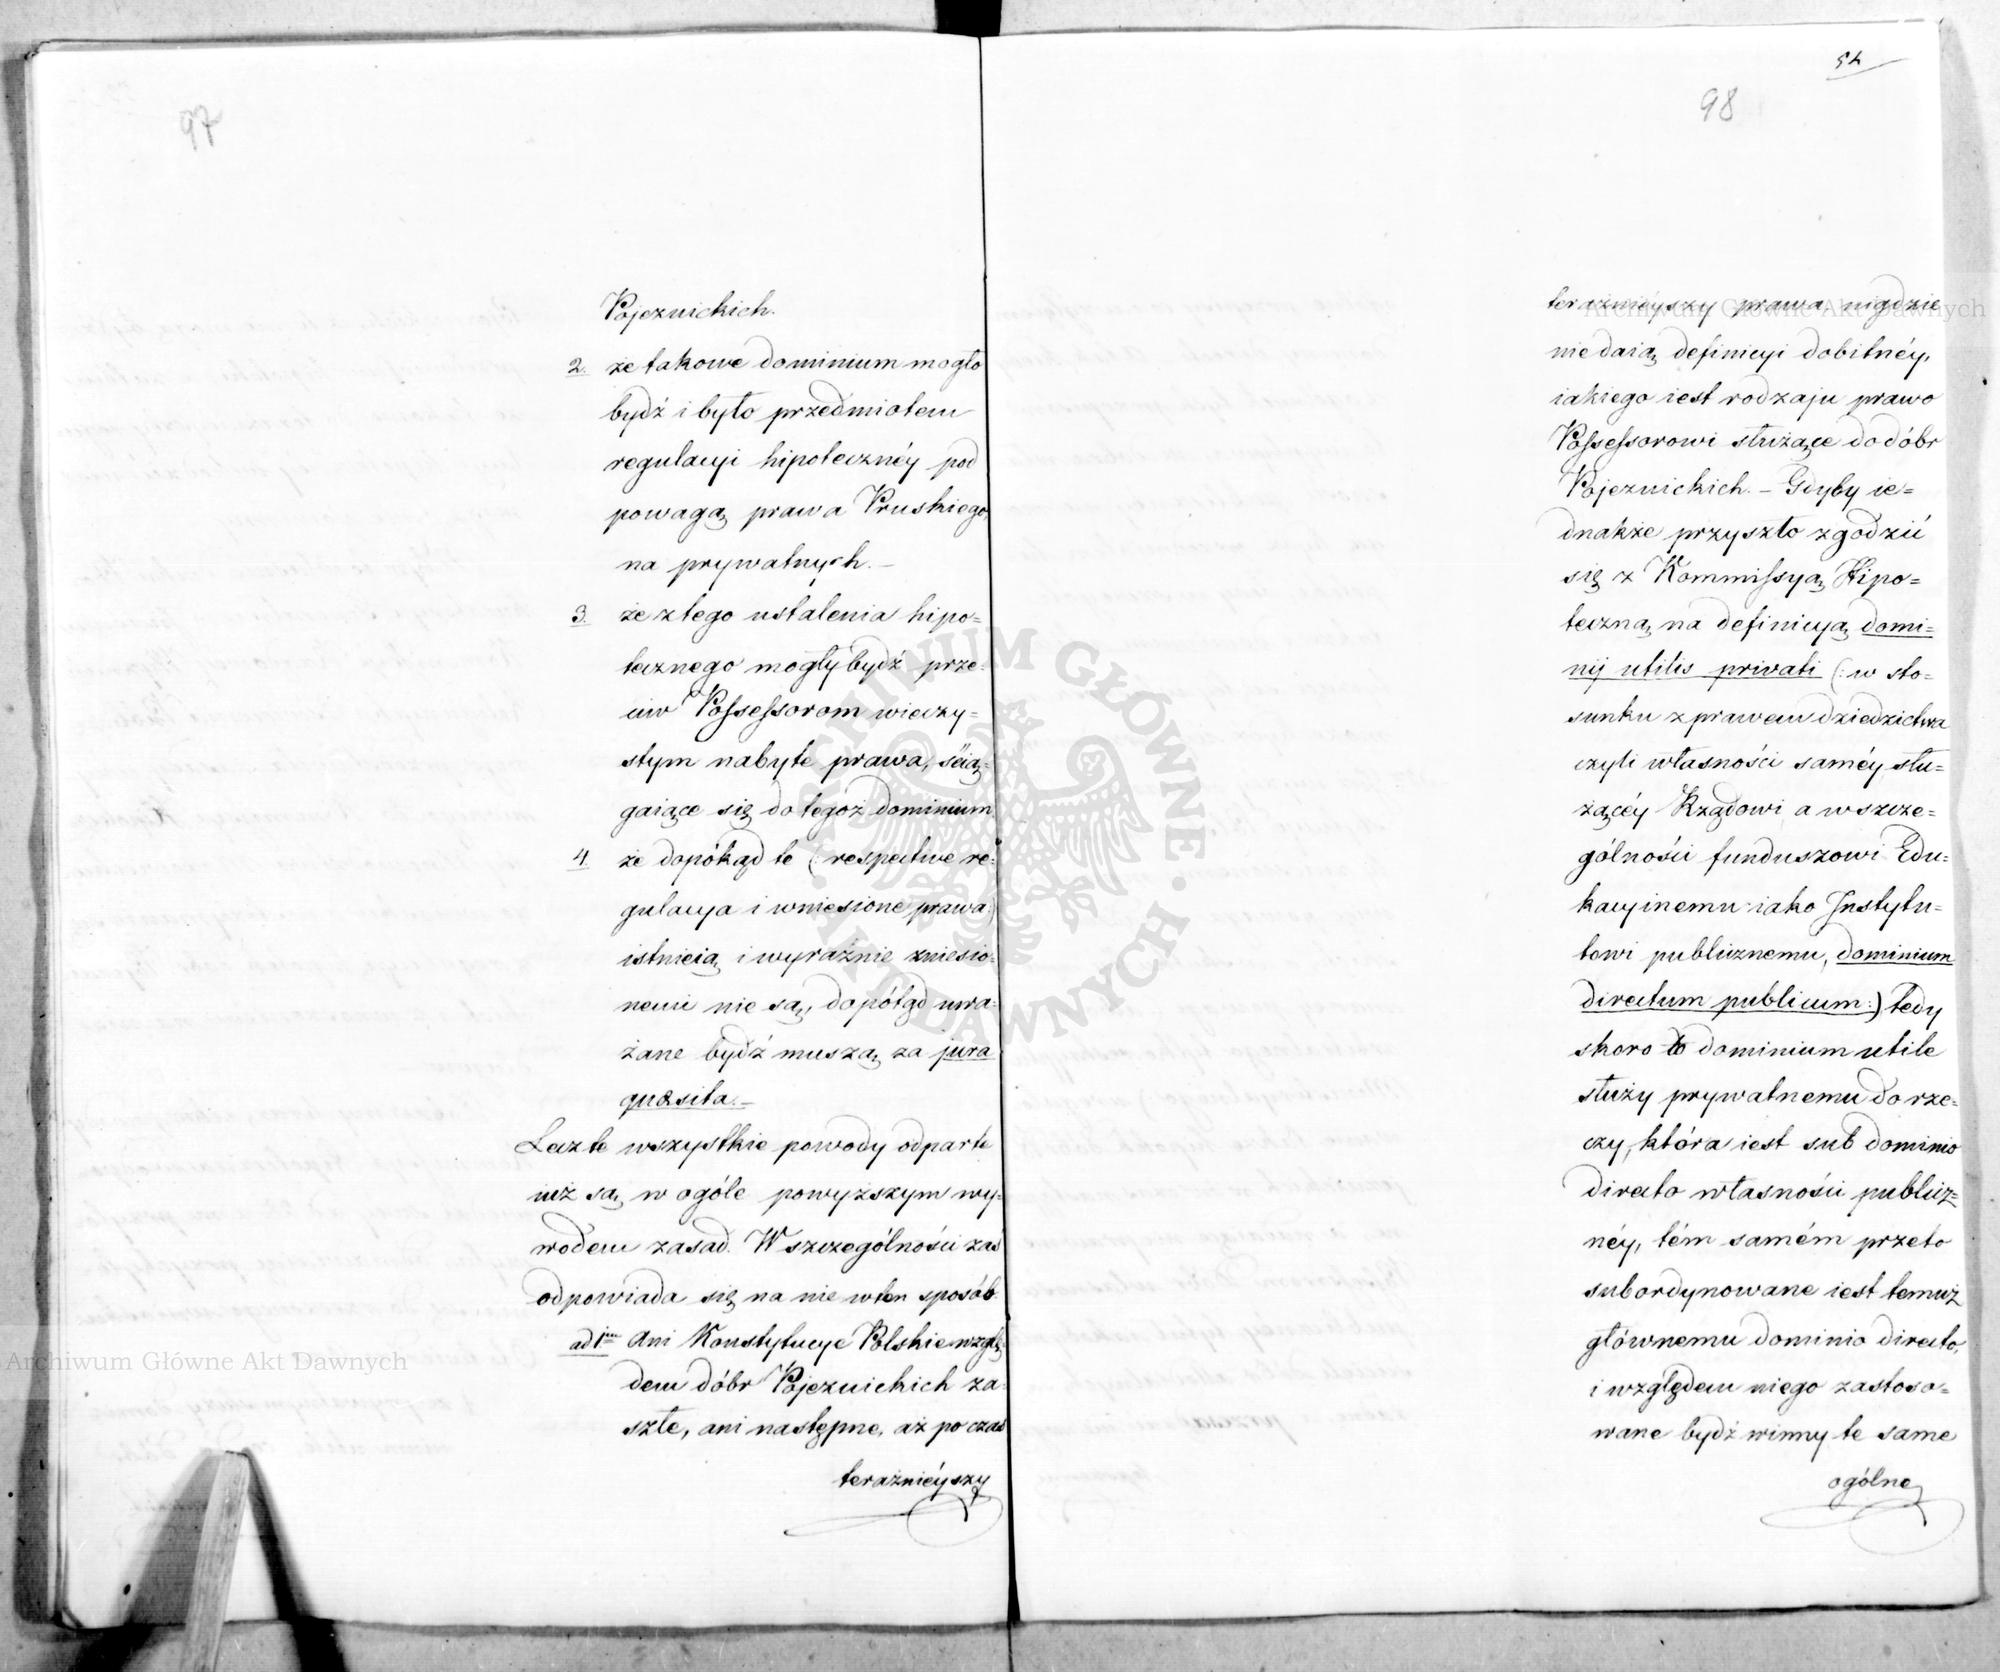 97
Pojezuickich.
2. że takowe dominium mogło
bydź i było przedmiotem
regulacyi hipotecznéy pod
powagą prawa Pruskiego,
na prywatnych. –
3. że z tego ustalenia hipo=
tecznego mogły bydź prze=
ciw Possessorom wieczy=
stym nabyte prawa, ścią=
gaiące się do tegoż dominium
4. że dopókąd te (: respective re=
gulacya i wniesione prawa:)
istnieią i wyraźnie zniesio=
nemi nie są, dopótąd uwa=
żane bydź muszą za jura
quæsita. –
Lecz te wszystkie powody odparte
iuż są w ogóle powyższym wy=
wodem zasad. W szczególności zaś
odpowiada się na nie w ten sposób
ad 1mum Ani Konstytucye Polskie wzglę=
dem dóbr Pojezuickich za=
szłe, ani następne, aż po czas
teraźnieyszy
54
98
teraźnieyszy prawa, nigdzie
nie daią definicyi dobitnéy,
iakiego iest rodzaju prawo
Possessorowi służące do dóbr
Pojezuickich. – Gdyby ie=
dnakże przyszło zgodzić
się z Kommissyą Hipo=
teczną na definicyą domi=
nij utilis privati (: w sto=
sunku z prawem dziedzictwa
czyli własności saméy słu=
żącéy Rządowi a w szcze=
gólności funduszowi Edu=
kacyinemu iako Instytu=
towi publicznemu, dominium
directum publicum:) tedy
skoro to dominium utile
służy prywatnemu do rze=
czy, która iest sub dominio
directo własności publicz=
néy, tém samém przeto
subordynowane iest temuż
głównemu dominio directo,
i względem niego zastoso=
wane bydź winny te same
ogólne
Archiwum Główne Akt Dawnych
Archiwum Główne Akt Dawnych
ARCHIWUM GŁÓWNE · AKT DAWNYCH ·